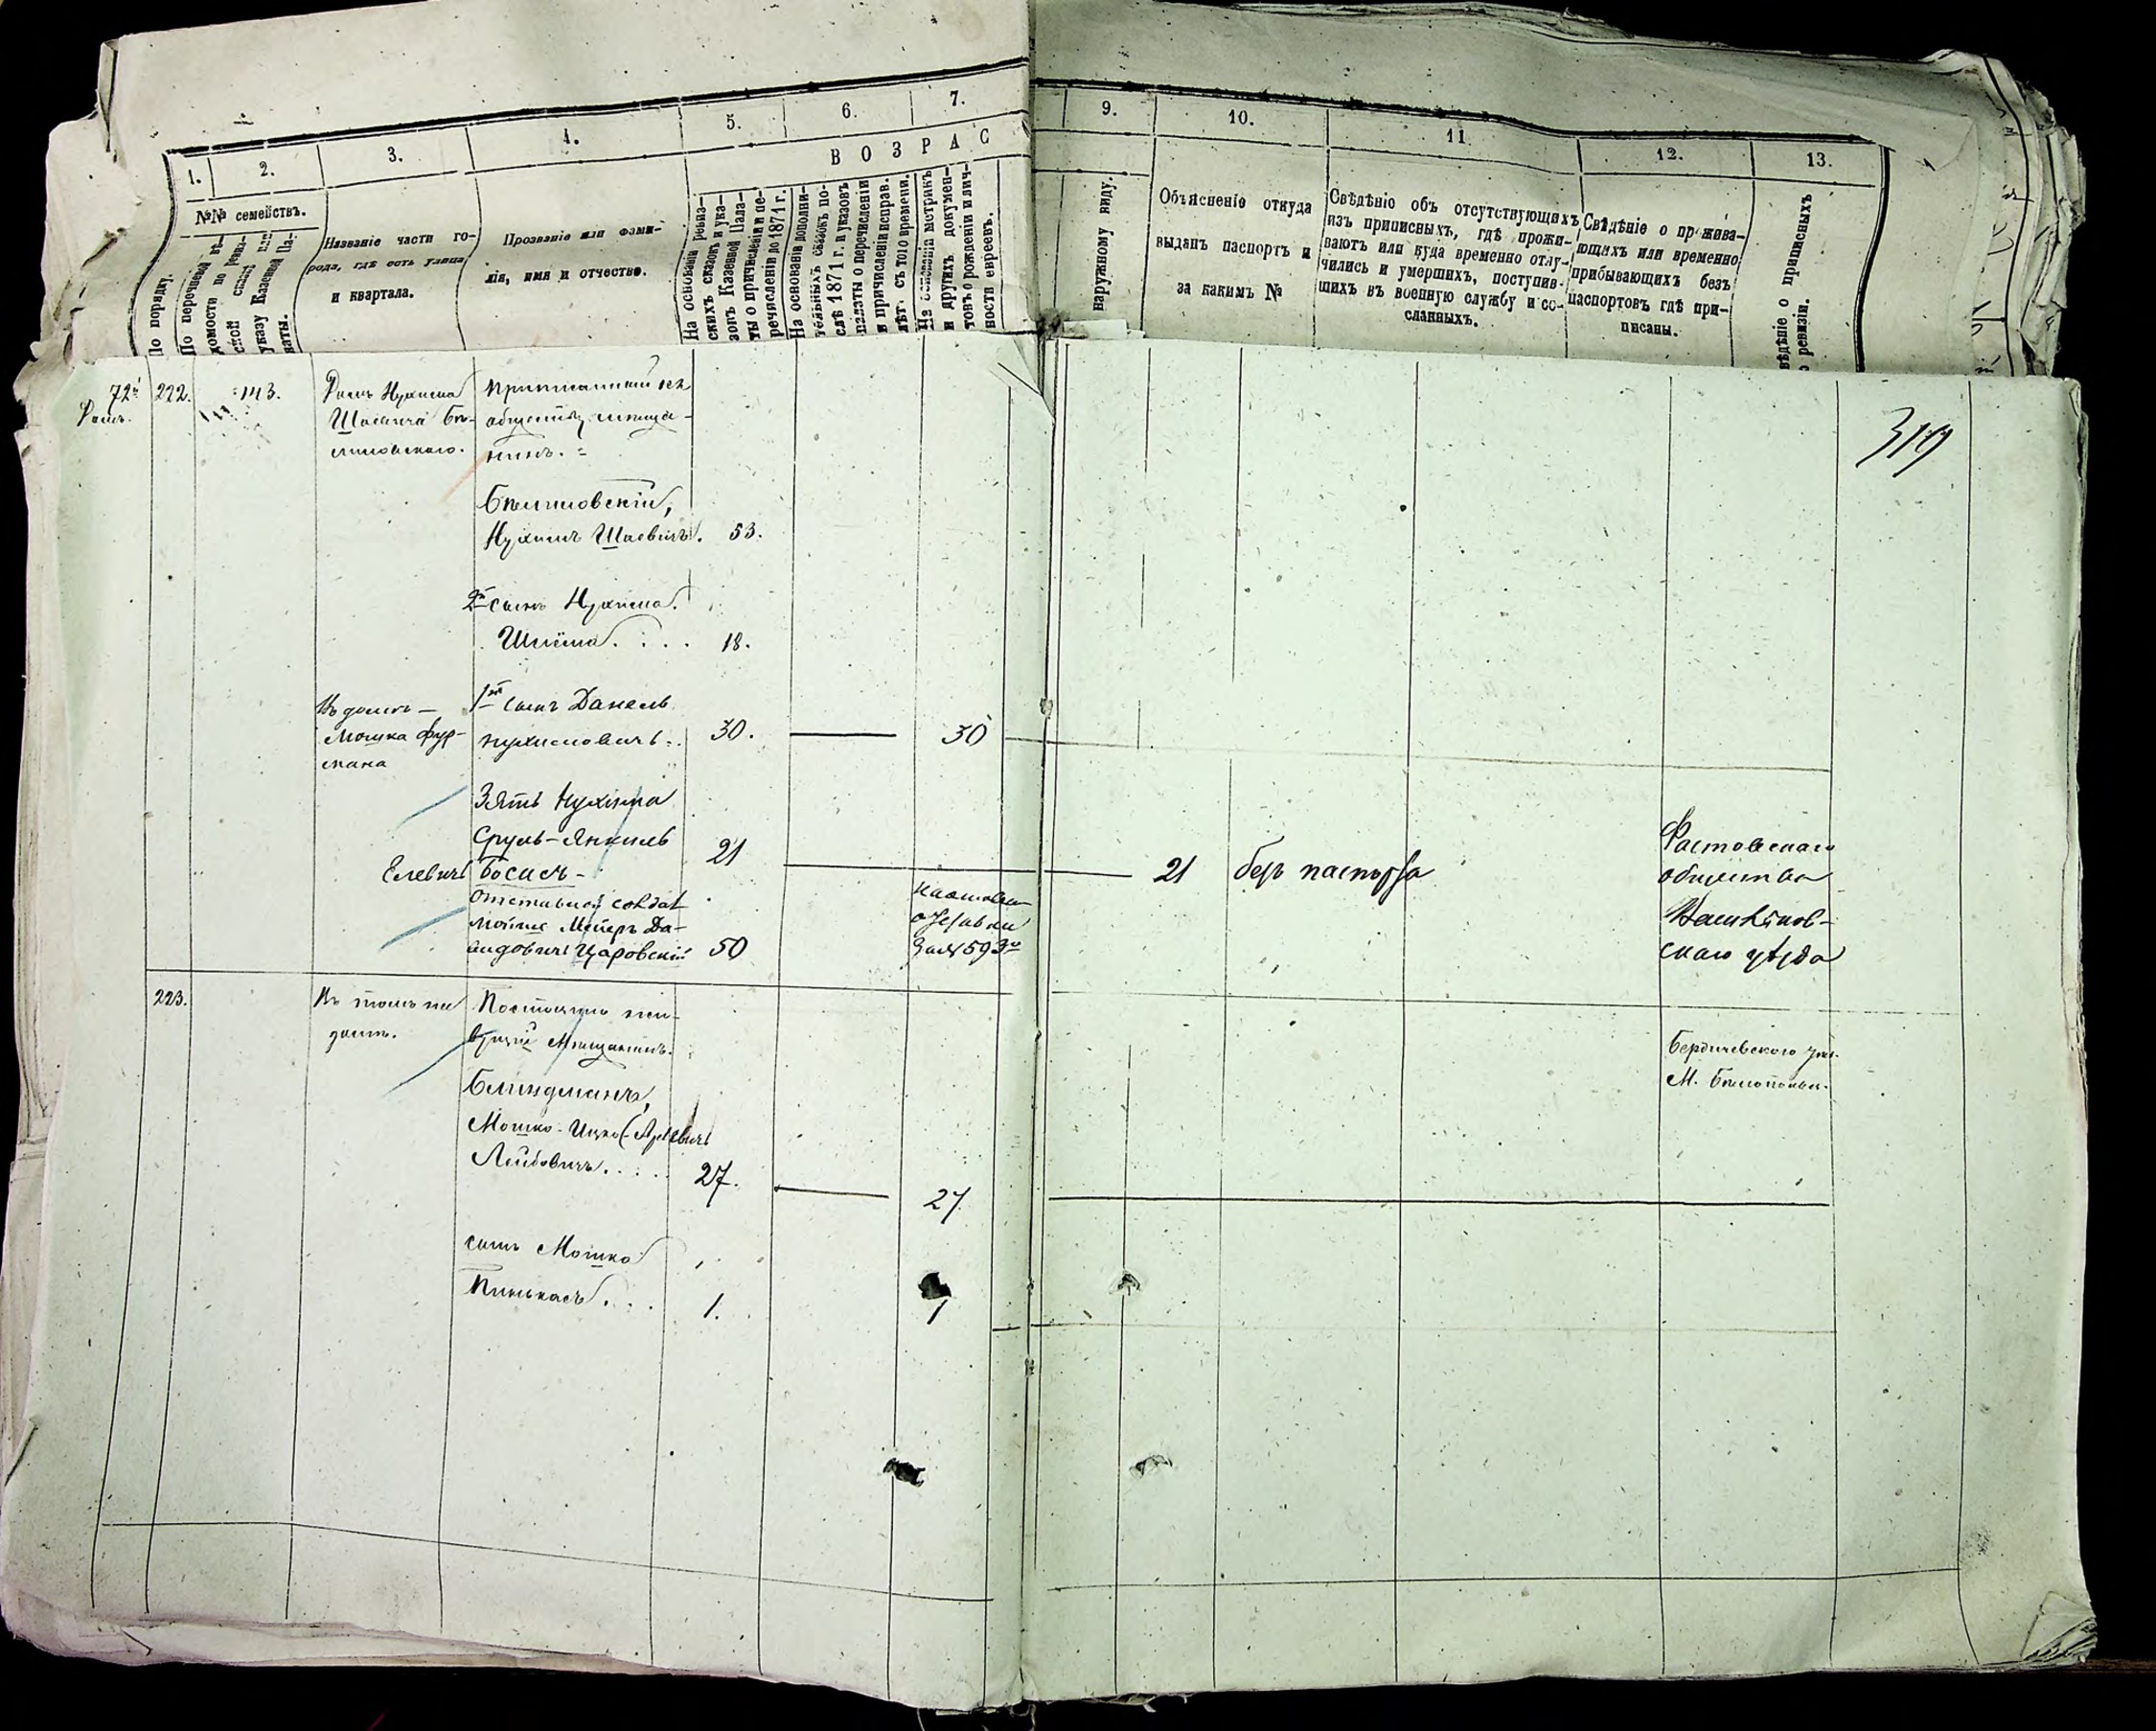 1.
2.
3.
4.
5.
6.
7.
№№ семействъ.
По порядку.
По перечневой вѣ-
домости по ревиз-
ской сказкѣ или
указу Казенной Па-
латы.
Названіе части го-
рода, гдѣ есть улица
и квартала.
Прозваніе или фами-
лія, имя и отчество.
ВОЗРАС
На основаніи ревиз-
скихъ сказокъ и ука-
зовъ Казенной Пала-
ты о причисленіи и пе-
речисленіи до 1871 г.
На основаніи дополни-
тельныхъ сказокъ по-
слѣ 1871 г. и указовъ
палаты о перечисленіи
и причисленіи исправ.
лѣтъ съ того времени.
На основаніи метрикъ
и другихъ докумен-
товъ о рожденіи и лич-
ности евреевъ.
9.
10.
11
12.
13.
наружному виду.
Объясненіе откуда
выданъ паспортъ и
за какимъ №
Свѣдѣніе объ отсутствующихъ
изъ приписныхъ, гдѣ прожи-
ваютъ или куда временно отлу-
чились и умершихъ, поступив-
шихъ въ военную службу и со-
сланныхъ.
Свѣдѣніе о прожива-
ющихъ или временно
прибывающихъ безъ
паспортовъ гдѣ при-
писаны.
вѣдѣніе о приписныхъ
ревизіи.
72й
Домъ.
222.
143.
Домъ Нухима
Шаевича Бѣ-
лиловскаго.
Приписанный къ
обществу мѣща-
нинъ.
Бѣлиловскій,
Нухимъ Шаевичъ. 53.
2й сынъ Нухима
Шлёма . . . . 18.
Въ домѣ
Мошка Фур-
мана
1й сынъ Данель
Нухимовичъ . . 30. 30
Зять Нухима
Сруль-Янкель
Елевичъ Босисъ 21 21 безъ паспорта
Фастовскаго
общества
Васильков-
скаго уѣзда
отставной солдат
Мошко Мейеръ Да-
видовичъ Царовскій 50
за № 593
319
223.
Въ томъ же
домѣ.
Постоянно жи-
вущій Мѣщанинъ.
Блиндманъ,
Мошко-Ицко (Арьевичъ
Лейбовичъ . . . . . 27. 27
Бердичевскаго уѣз.
М. Бѣлополья.
сынъ Мошка
Пинькасъ . . . 1. 1